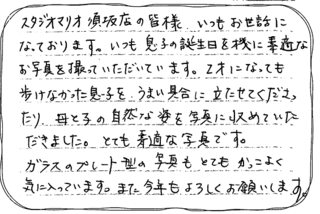 スタジオマリオ須坂店の皆様、いつもお世話に
なっております。いつも息子の誕生日を機に素適な
お写真を撮っていただいています。2才になっても
歩けなかった息子を、うまい具合に立たせてくださっ
たり、母と子の自然な姿を写真に収めていた
だきました。とても素適な写真です。
ガラスのプレート型の写真もとてもかっこよく
気に入っています。また今年もよろしくお願いします。